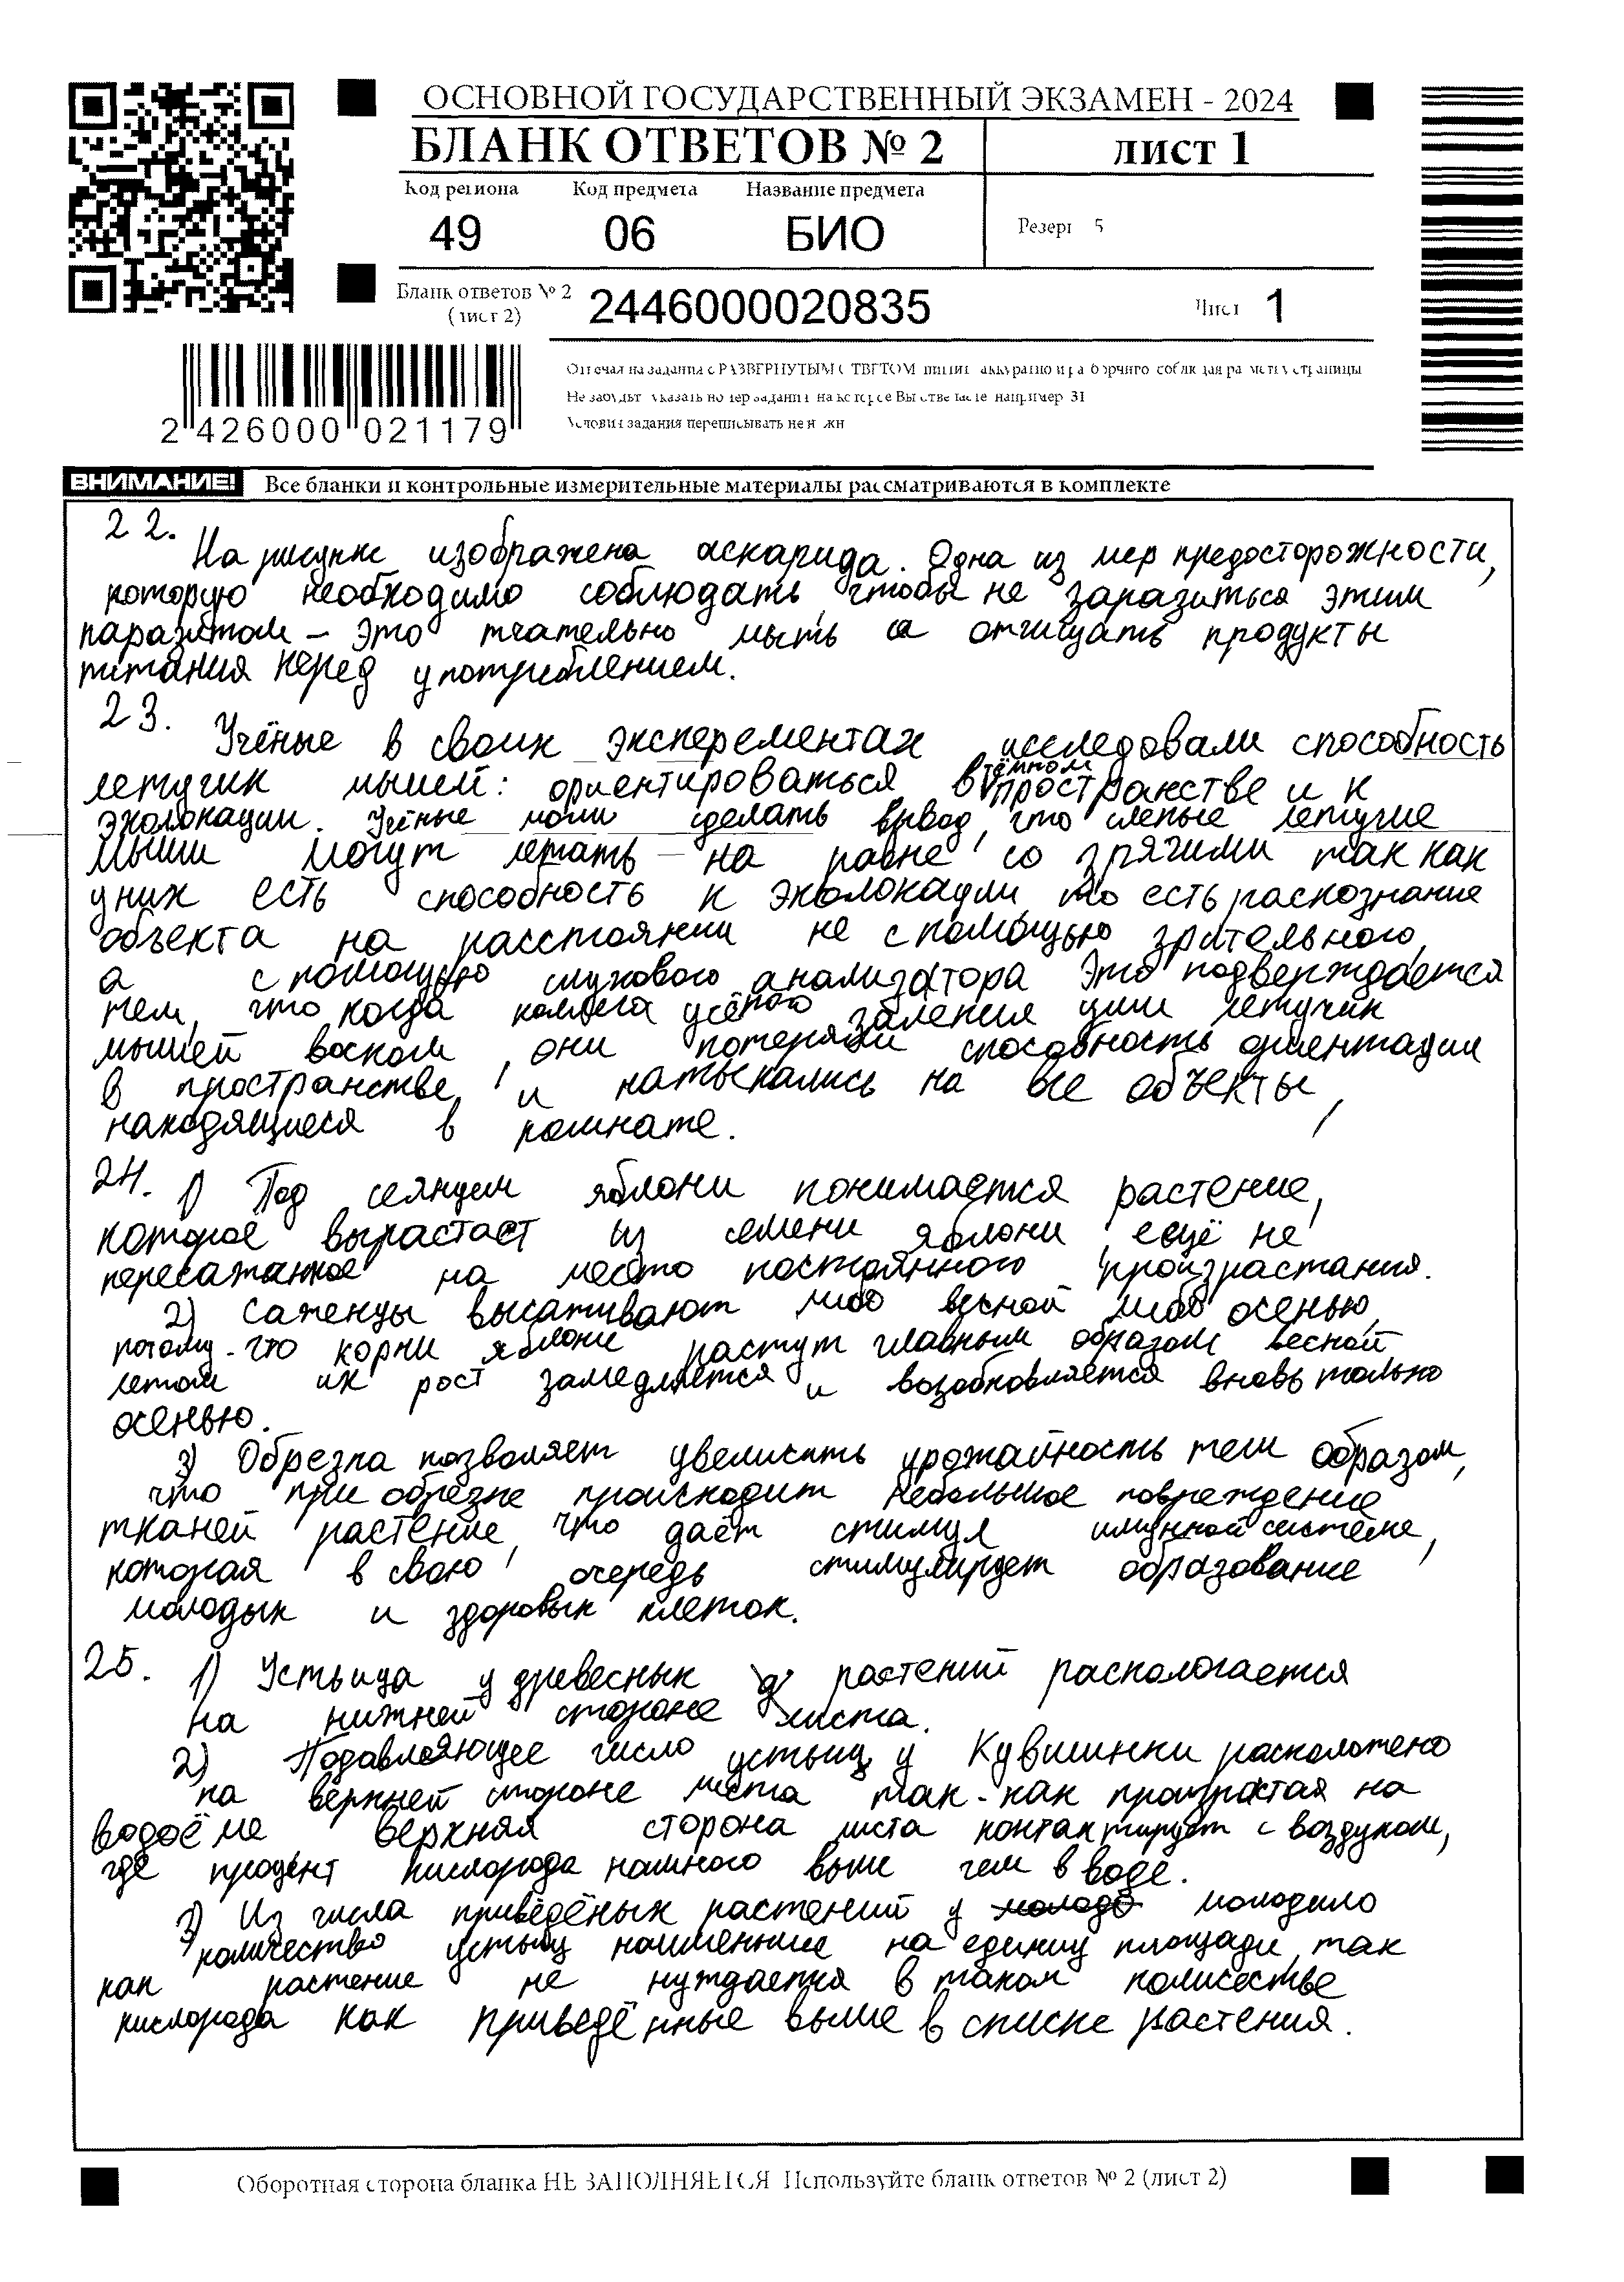 ОСНОВНОЙ ГОСУДАРСТВЕННЫЙ ЭКЗАМЕН - 2024
БЛАНК ОТВЕТОВ № 2
ЛИСТ 1
Код региона Код предмета Название предмета
49 06 БИО
Резерв 5
Бланк ответов № 2
(лист 2)
2446000020835
Лист 1
2 426000 021179
ВНИМАНИЕ! Все бланки и контрольные измерительные материалы рассматриваются в комплекте
22.
На рисунке изображена аскарида. Одна из мер предосторожности,
которую необходимо соблюдать, чтобы не заразиться этим
паразитом – это тчательно мыть и отчищать продукты
питания перед употреблением.
23. Учёные в своих эксперементах исследовали способность
летучих мышей: ориентироваться в тёмном пространстве и к
эхолокации. Учёные могли сделать вывод, что слепые летучие
мыши могут летать на равне со зрячими так как
у них есть способность к эхолокации то есть распознание
объекта на расстоянии не с помощью зрительного,
а с помощью слухового анализатора Это подверждается
тем, что когда коллега учёного залепил уши летучих
мышей воском, они потеряли способность ориентации
в пространстве, и натыкались на все объекты,
находящиеся в комнате.
24. 1) Под сеянцем яблони понимается растение,
которое вырастает из семени яблони ещё не
пересаженное на место постоянного произрастания.
2) Саженцы высаживают либо весной либо осенью,
потому-что корни яблони растут главным образом весной
летом их рост замедляется и возобновляется вновь только
осенью.
3) Обрезка позволяет увеличить урожайность тем образом,
что при обрезке происходит небольшое повреждение
тканей растение, что даёт стимул имунной системе,
которая в свою очередь стимулирует образование
молодых и здоровых клеток.
25. 1) Устьица у древесных растений распологается
на нижней стороне листа.
2) Подавляющее число устьиц у Кувшинки расположено
на верхней стороне листа так-как произрастая на
водоёме верхняя сторона листа контактирует с воздухом,
где процент кислорода намного выше чем в воде.
3) Из числа приведёных растений у молодо молодило
количество устьиц наименьшее на единицу площади, так
как растение не нуждается в таком количестве
кислорода как приведённые выше в списке растения.
Оборотная сторона бланка НЕ ЗАПОЛНЯЕТСЯ Используйте бланк ответов № 2 (лист 2)